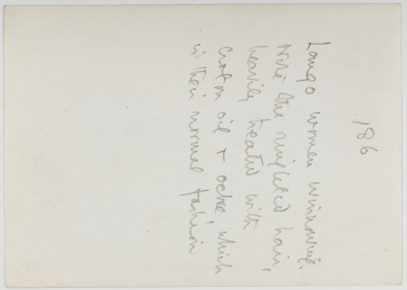 186
Lango women winnowing.
Note the ringleted hair,
heavily treated with
croton oil & ochre, which
is their normal fashion